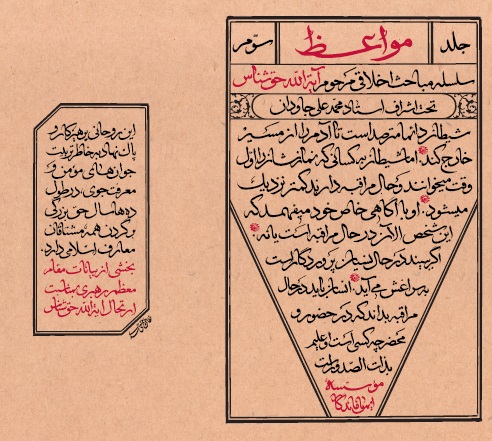 جلد
مواعظ
سوّم
سلسله مباحث اخلاقی مرحوم آیة اللّه حق شناس
تحت اشراف استاد محمد علی جاودان
شیطان دائما مترصد است تا آدم را از مسیر
خارج کند. اما شیطان به کسانی که نمازشان را اول
وقت میخوانند و حال مراقبه دارند کمتر نزدیک
میشود. او با آگاهی خاص خود میفهمد که
این شخص الآن در حال مراقبه است یا نه.
اگر ببیند در حال نسیان پروردگار است
به سراغش می‌آید. انسان باید در حال
مراقبه بداند که در حضور و
محضر چه کسی است او علیم
بذات الصدور است
مؤسسه
ایمان ماندگار
این روحانی پرهیزکار و
پاک نهاد به خاطر تربیت
جوان‌های مؤمن و
معرفت جوی، در طول
ده‌ها سال حق بزرگی
بر گردن همه مشتاقان
معارف اسلامی دارد.
بخشی از بیانات مقام
معظم رهبری بمناسبت
ارتحال آیة الله حق شناس